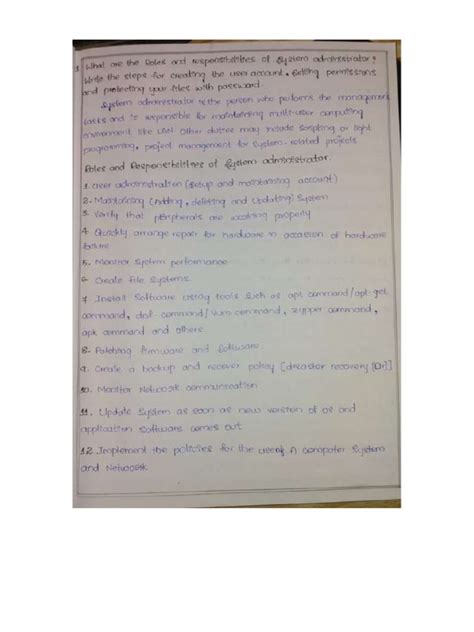 1 What are the Roles and responsibilities of System administrator?
Write the steps for creating the user account, Setting permissions
and protecting your files with password.
System administrator is the person who performs the management
tasks and is responsible for maintaining multi-user computing
environment like LAN. Other duties may include scripting or light
programming, project management for System-related projects
Roles and Responsibilities of System administrator.
1. User administration (Setup and maintaining account)
2. Maintaining (Adding, deleting and Updating) System
3. Verify that peripherals are working properly
4. Quickly arrange repair for hardware in occasion of hardware
failure
5. Monitor System performance
6. Create File Systems.
7. Install Software using tools such as apt command/apt-get
command, dnf command/Yum command, zypper command,
apk command and others
8. Patching firmware and software.
9. Create a backup and recover policy [disaster recovery [Dr]]
10. Monitor Network communication
11. Update System as soon as new version of os and
application Software comes out
12. Implement the policies for the use of A computer System
and Network